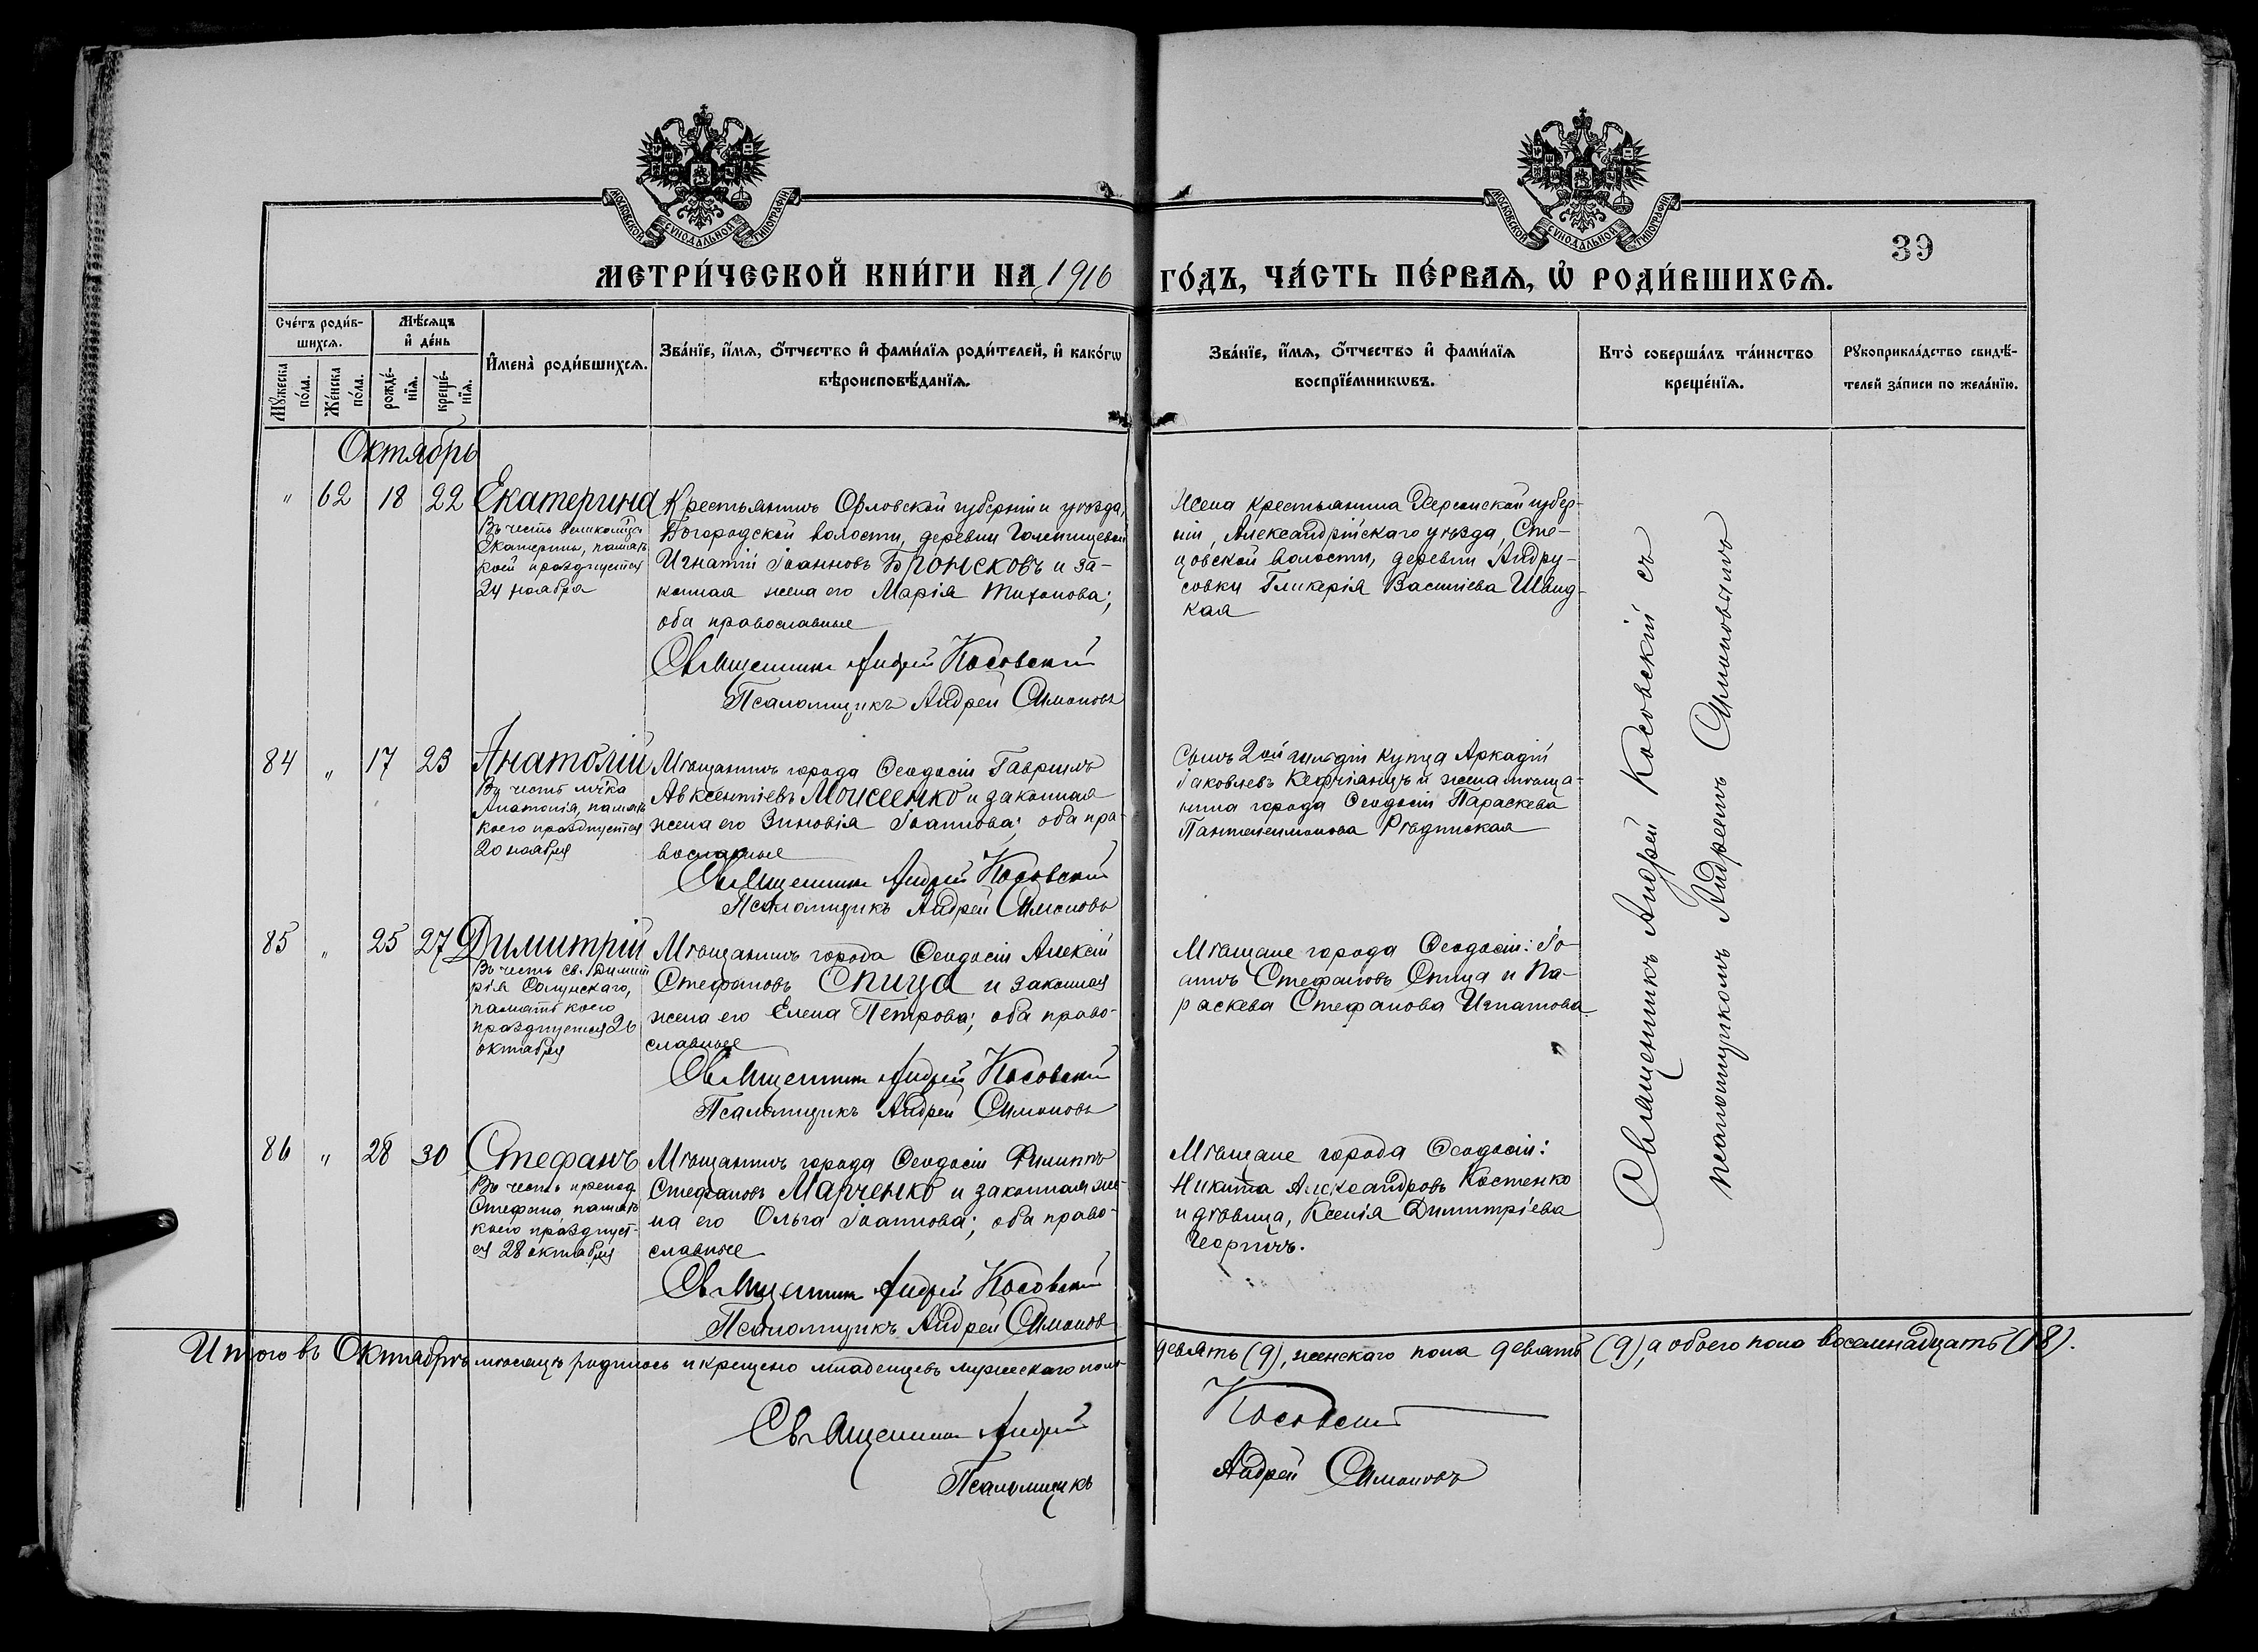 МОСКОВСКОЙ СѴНОДАЛЬНОЙ ТИПОГРАФІИ
МОСКОВСКОЙ СѴНОДАЛЬНОЙ ТИПОГРАФІИ
39
МЕТРИ́ЧЕСКОЙ КНИ́ГИ НА 1916 ГО́ДЪ, ЧА́СТЬ ПЕ́РВАѦ, Ѡ҆ РОДИ́ВШИХСѦ.
Сче́тъ роди́в-
шихсѧ.
Мѣ́сѧцъ
и҆ де́нь
Мꙋ́жеска по́ла.
Же́нска по́ла.
рожде́-
нїѧ.
креще́-
нїѧ.
И҆мена̀ роди́вшихсѧ.
Зва́нїе, и҆́мѧ, ѻ҆́тчество и҆ фами́лїѧ роди́телей, и҆ како́гѡ
вѣроисповѣ́данїѧ.
Зва́нїе, и҆́мѧ, ѻ҆́тчество и҆ фами́лїѧ
воспрїе́мникѡвъ.
Кто̀ соверша́лъ та́инство
креще́нїѧ.
Рꙋкоприкла́дство свидѣ́-
телей за́писи по жела́нїю.
Октябрь
" 62 18 22 Екатерина
Въ честь великомуч.
Екатерины, память
коей празднуется
24 ноября
Крестьянинъ Орловской губерніи и уѣзда,
Богородской волости, деревни Голенищевой
Игнатій Іоанновъ Бронсковъ и за-
конная жена его Марія Тихонова;
оба православные
Священникъ Андрей Косовскій
Псаломщикъ Андрей Симоновъ
Жена крестьянина Херсонской губер-
ніи, Александрійскаго уѣзда, Сте-
цовской волости, деревни Андру-
совки Гликерія Василіева Швид-
кая
84 " 17 23 Анатолій
Въ честь мч҃ка
Анатолія, память
коего празднуется
20 ноября
Мѣщанинъ города Ѳеодосіи Гавріилъ
Авксентіевъ Моисеенко и законная
жена его Зиновія Іоаннова; оба пра-
вославные
Священникъ Андрей Косовскій
Псаломщикъ Андрей Симоновъ
Сынъ 2ой гильдіи купца Аркадій
Іаковлевъ Кефчіянцъ и жена мѣща-
нина города Ѳеодосіи Параскева
Пантелеимонова Рѣдинская
85 " 25 27 Димитрій
Въ честь св. Димит
рія Солунскаго,
память коего
празднуется 26
октября
Мѣщанинъ города Ѳеодосіи Алексій
Стефановъ Спица и законная
жена его Елена Петрова; оба право-
славные
Священникъ Андрей Косовскій
Псаломщикъ Андрей Симоновъ
Мѣщане города Ѳеодосіи: Іо-
аннъ Стефановъ Спица и Па-
раскева Стефанова Игнатова
86 " 28 30 Стефанъ
Въ честь препод.
Стефана, память
коего празднует-
ся 28 октября
Мѣщанинъ города Ѳеодосіи Филиппъ
Стефановъ Марченко и законная же-
на его Ольга Іоаннова; оба право-
славные
Священникъ Андрей Косовскій
Псаломщикъ Андрей Симоновъ
Мѣщане города Ѳеодосіи:
Никита Александровъ Костенко
и дѣвица, Ксенія Димитріева
Священникъ Андрей Косовскій съ
псаломщикомъ Андреемъ Симоновымъ
Итого въ Октябрѣ мѣсяцѣ родилось и крещено младенцевъ мужескаго пола девять (9), женскаго пола девять (9), а обоего пола восемнадцать (18).
Священникъ Андрей Косовскій
Псаломщикъ Андрей Симоновъ